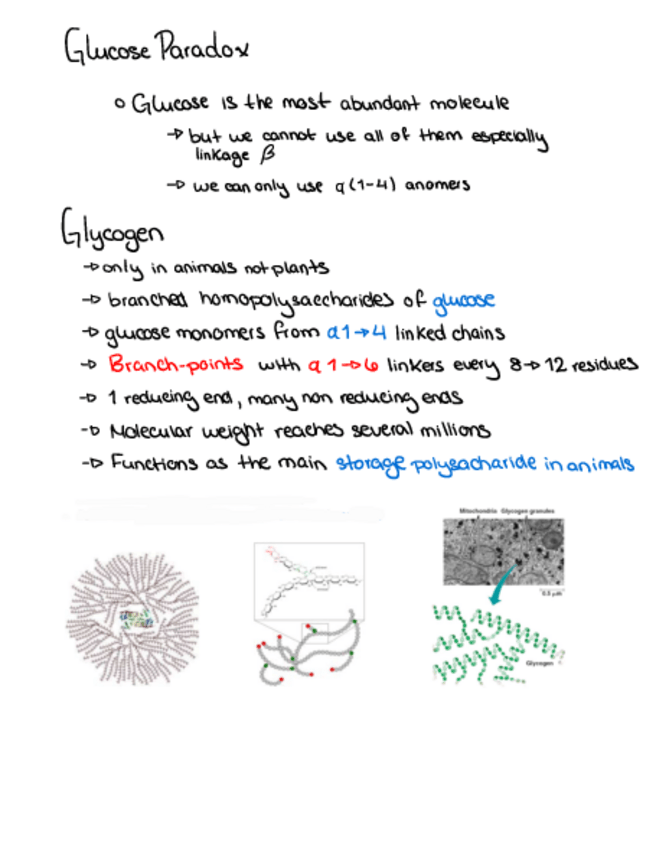 Glucose Paradox
o Glucose is the most abundant molecule
→ but we cannot use all of them especially
linkage β
→ we can only use α(1-4) anomers
Glycogen
→ only in animals not plants
→ branched homopolysaccharides of glucose
→ glucose monomers from α1→4 linked chains
→ Branch-points with α 1→6 linkers every 8→12 residues
→ 1 reducing end, many non reducing ends
→ Molecular weight reaches several millions
→ Functions as the main storage polysacharide in animals
Mitochondria Glycogen granules
0.5 µm
Glycogen